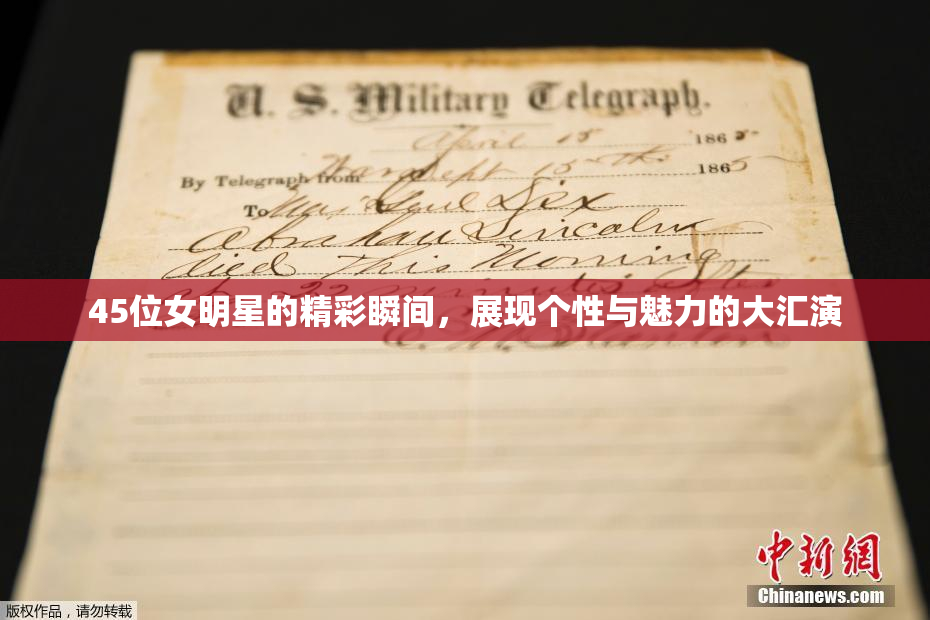 U. S. Military Telegraph.
April 15 1865
By Telegraph from War Dept 15th 1865
To Maj Genl Dix
Abraham Lincoln
died This Morning
at 22 minutes after
45位女明星的精彩瞬间，展现个性与魅力的大汇演
E. M. Stanton
中新网
Chinanews.com
版权作品，请勿转载